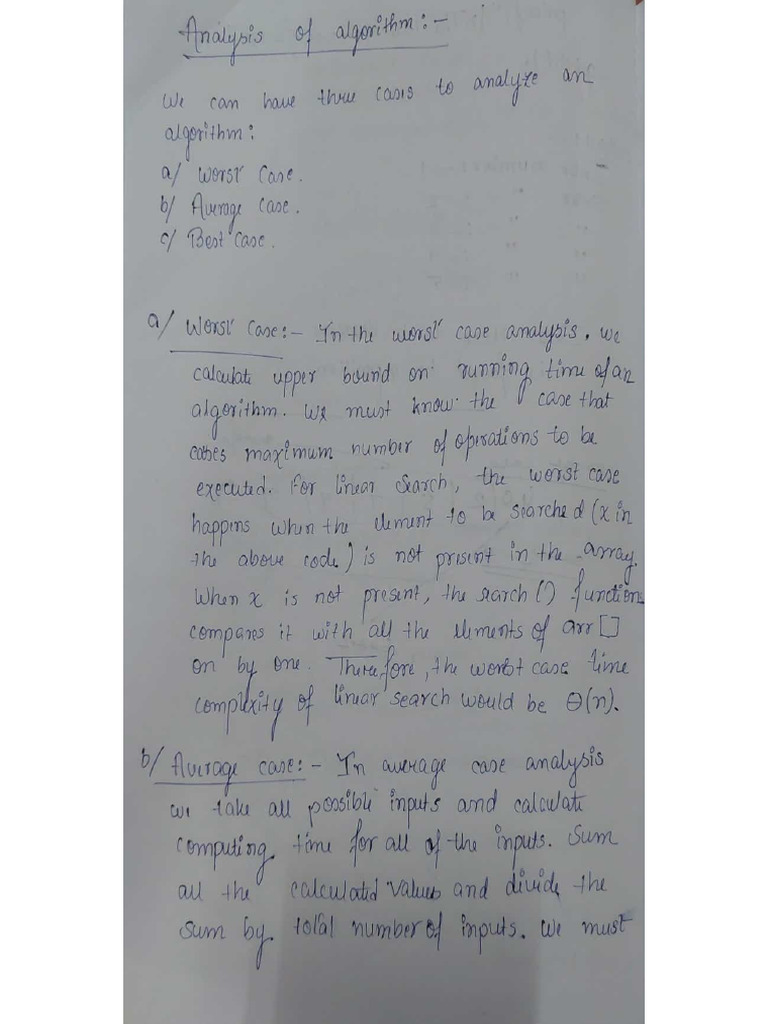 Analysis of algorithm:-
We can have three cases to analyze an
algorithm:
a/ Worst Case.
b/ Average Case.
c/ Best Case.
a/ Worst Case:- In the worst case analysis, we
calculate upper bound on running time of an
algorithm. We must know the case that
cases maximum number of operations to be
executed. For linear search, the worst case
happens when the element to be searched (x in
the above code) is not present in the array.
When x is not present, the search () functions
compares it with all the elements of arr []
on by one. Therefore, the worst case time
complexity of linear search would be Θ(n).
b/ Average case:- In average case analysis
we take all possible inputs and calculate
computing time for all of the inputs. Sum
all the calculated values and divide the
sum by total number of inputs. We must